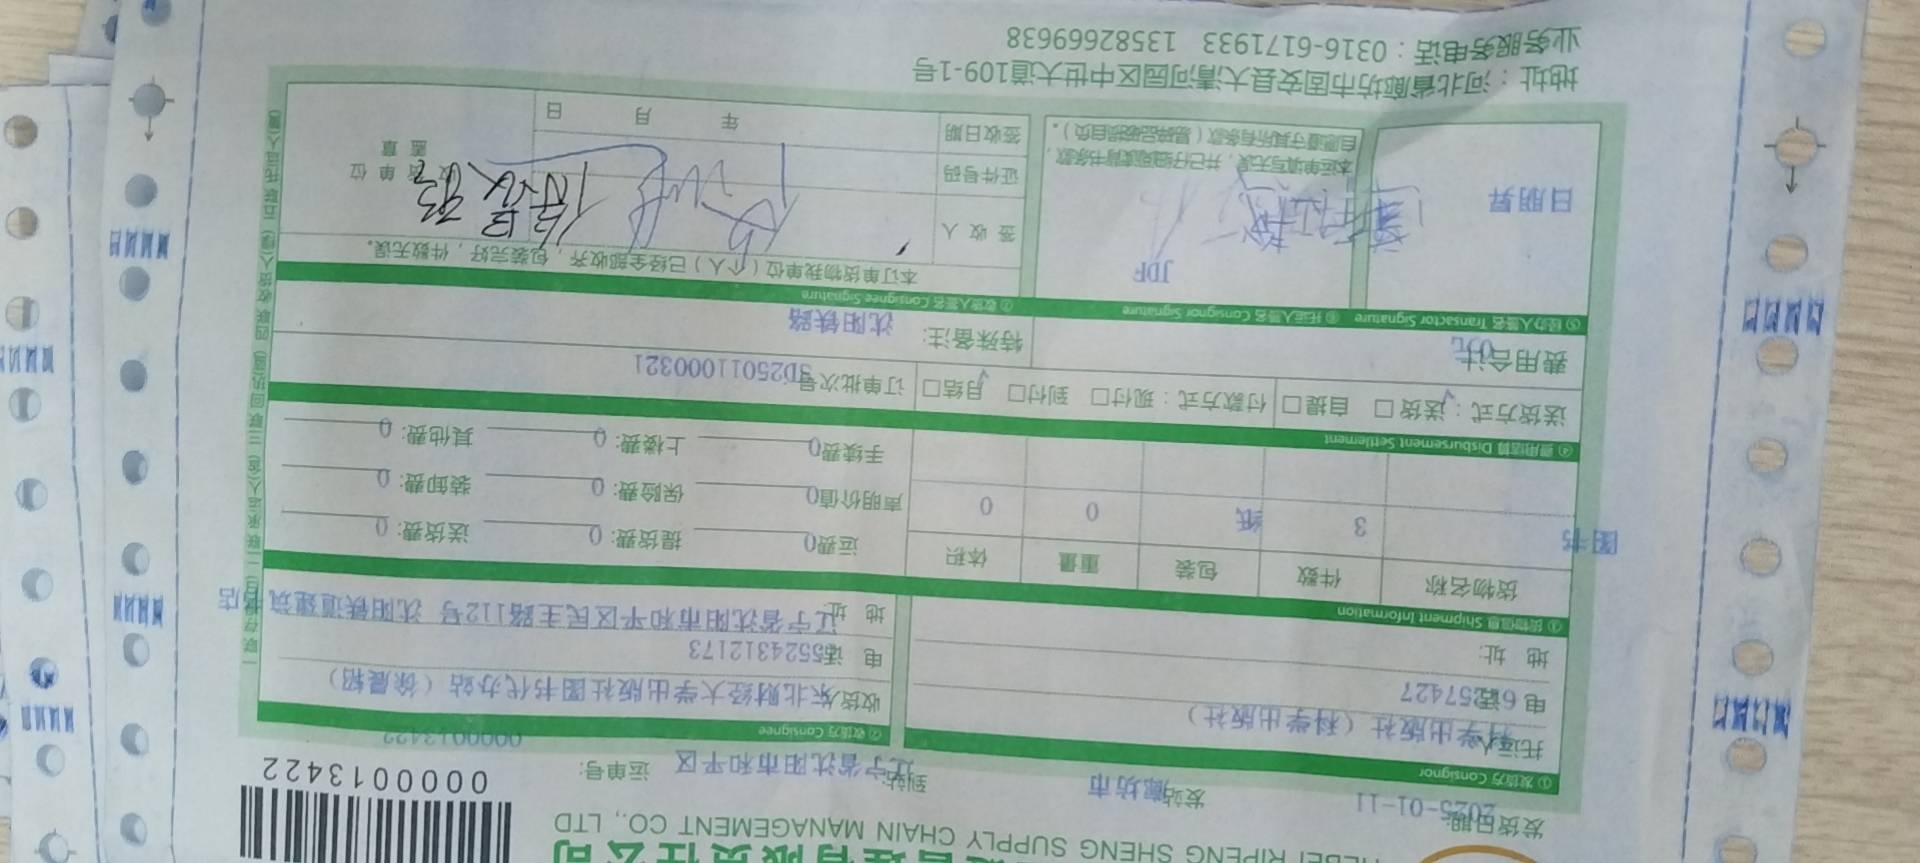 HEBEI RIPENG SHENG SUPPLY CHAIN MANAGEMENT CO., LTD
0000013422
发货日期: 2025-01-11
发站: 廊坊市
到站: 辽宁省沈阳市和平区
运单号: 0000013422
① 发货方 Consignor
② 收货方 Consignee
托运人 科学出版社（科学出版社）
收货人 东北财经大学出版社图书代办站（徐晨韬）
电 话 6257427
电 话 15524312173
地 址:
地 址 辽宁省沈阳市和平区民主路112号 沈阳铁道建筑 书店
③ 货物信息 Shipment Information
货物名称 件数 包装 重量 体积
图书 3 纸 0 0
运费 0 提货费: 0 送货费: 0
声明价值 0 保险费: 0 装卸费: 0
手续费 0 上楼费: 0 其他费: 0
④ 费用结算 Disbursement Settlement
送货方式：送货□ 自提□
付款方式：现付□ 到付□ 月结□
订单批次号 SD25011000321
费用合计 0元
特殊备注: 沈阳铁路
⑤ 经办人签名 Transactor Signature
⑥ 托运人签名 Consignor Signature
⑦ 收货人签名 Consignee Signature
日朋昇
JDF
本运单填写无误，并已仔细阅读背书条款，
自愿遵守其所有条款（易碎品破损自负）。
本订单货物我单位（个人）已经全部收齐，包装完好，件数无误。
签 收 人
证件号码
签收日期 年 月 日
收 货 单 位
盖 章
地址：河北省廊坊市固安县大清河园区中世大道109-1号
业务服务电话：0316-6171933 13582669638